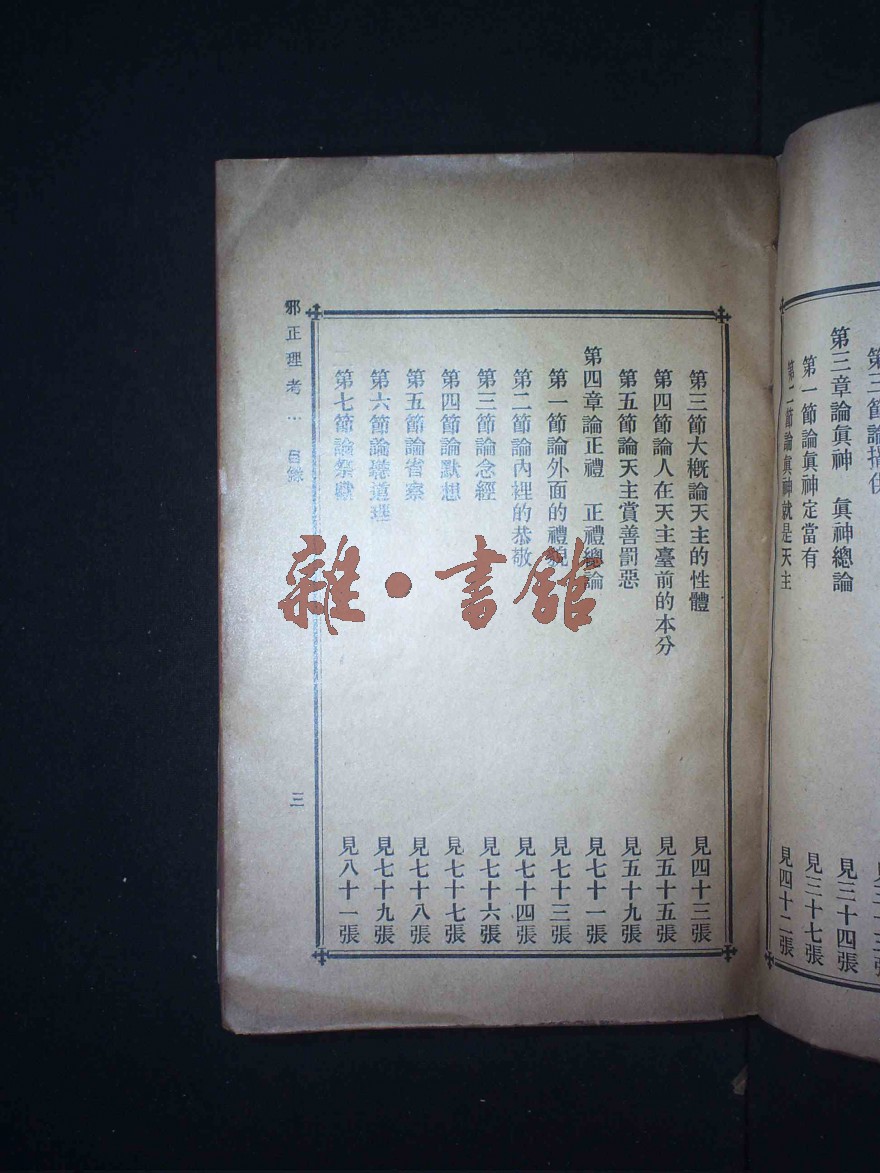 第三節論
見三十三張
第三章論眞神　眞神總論
見三十四張
第一節論眞神定當有
見三十七張
第二節論眞神就是天主
見四十二張
第三節大概論天主的性體
見四十三張
第四節論人在天主臺前的本分
見五十五張
第五節論天主賞善罰惡
見五十九張
第四章論正禮　正禮總論
見七十一張
第一節論外面的禮貌
見七十三張
第二節論內裡的恭敬
見七十四張
第三節論念經
見七十六張
第四節論默想
見七十七張
第五節論省察
見七十八張
第六節論聽道理
見七十九張
第七節論祭獻
見八十一張
邪正理考…目錄
三
雜·書館